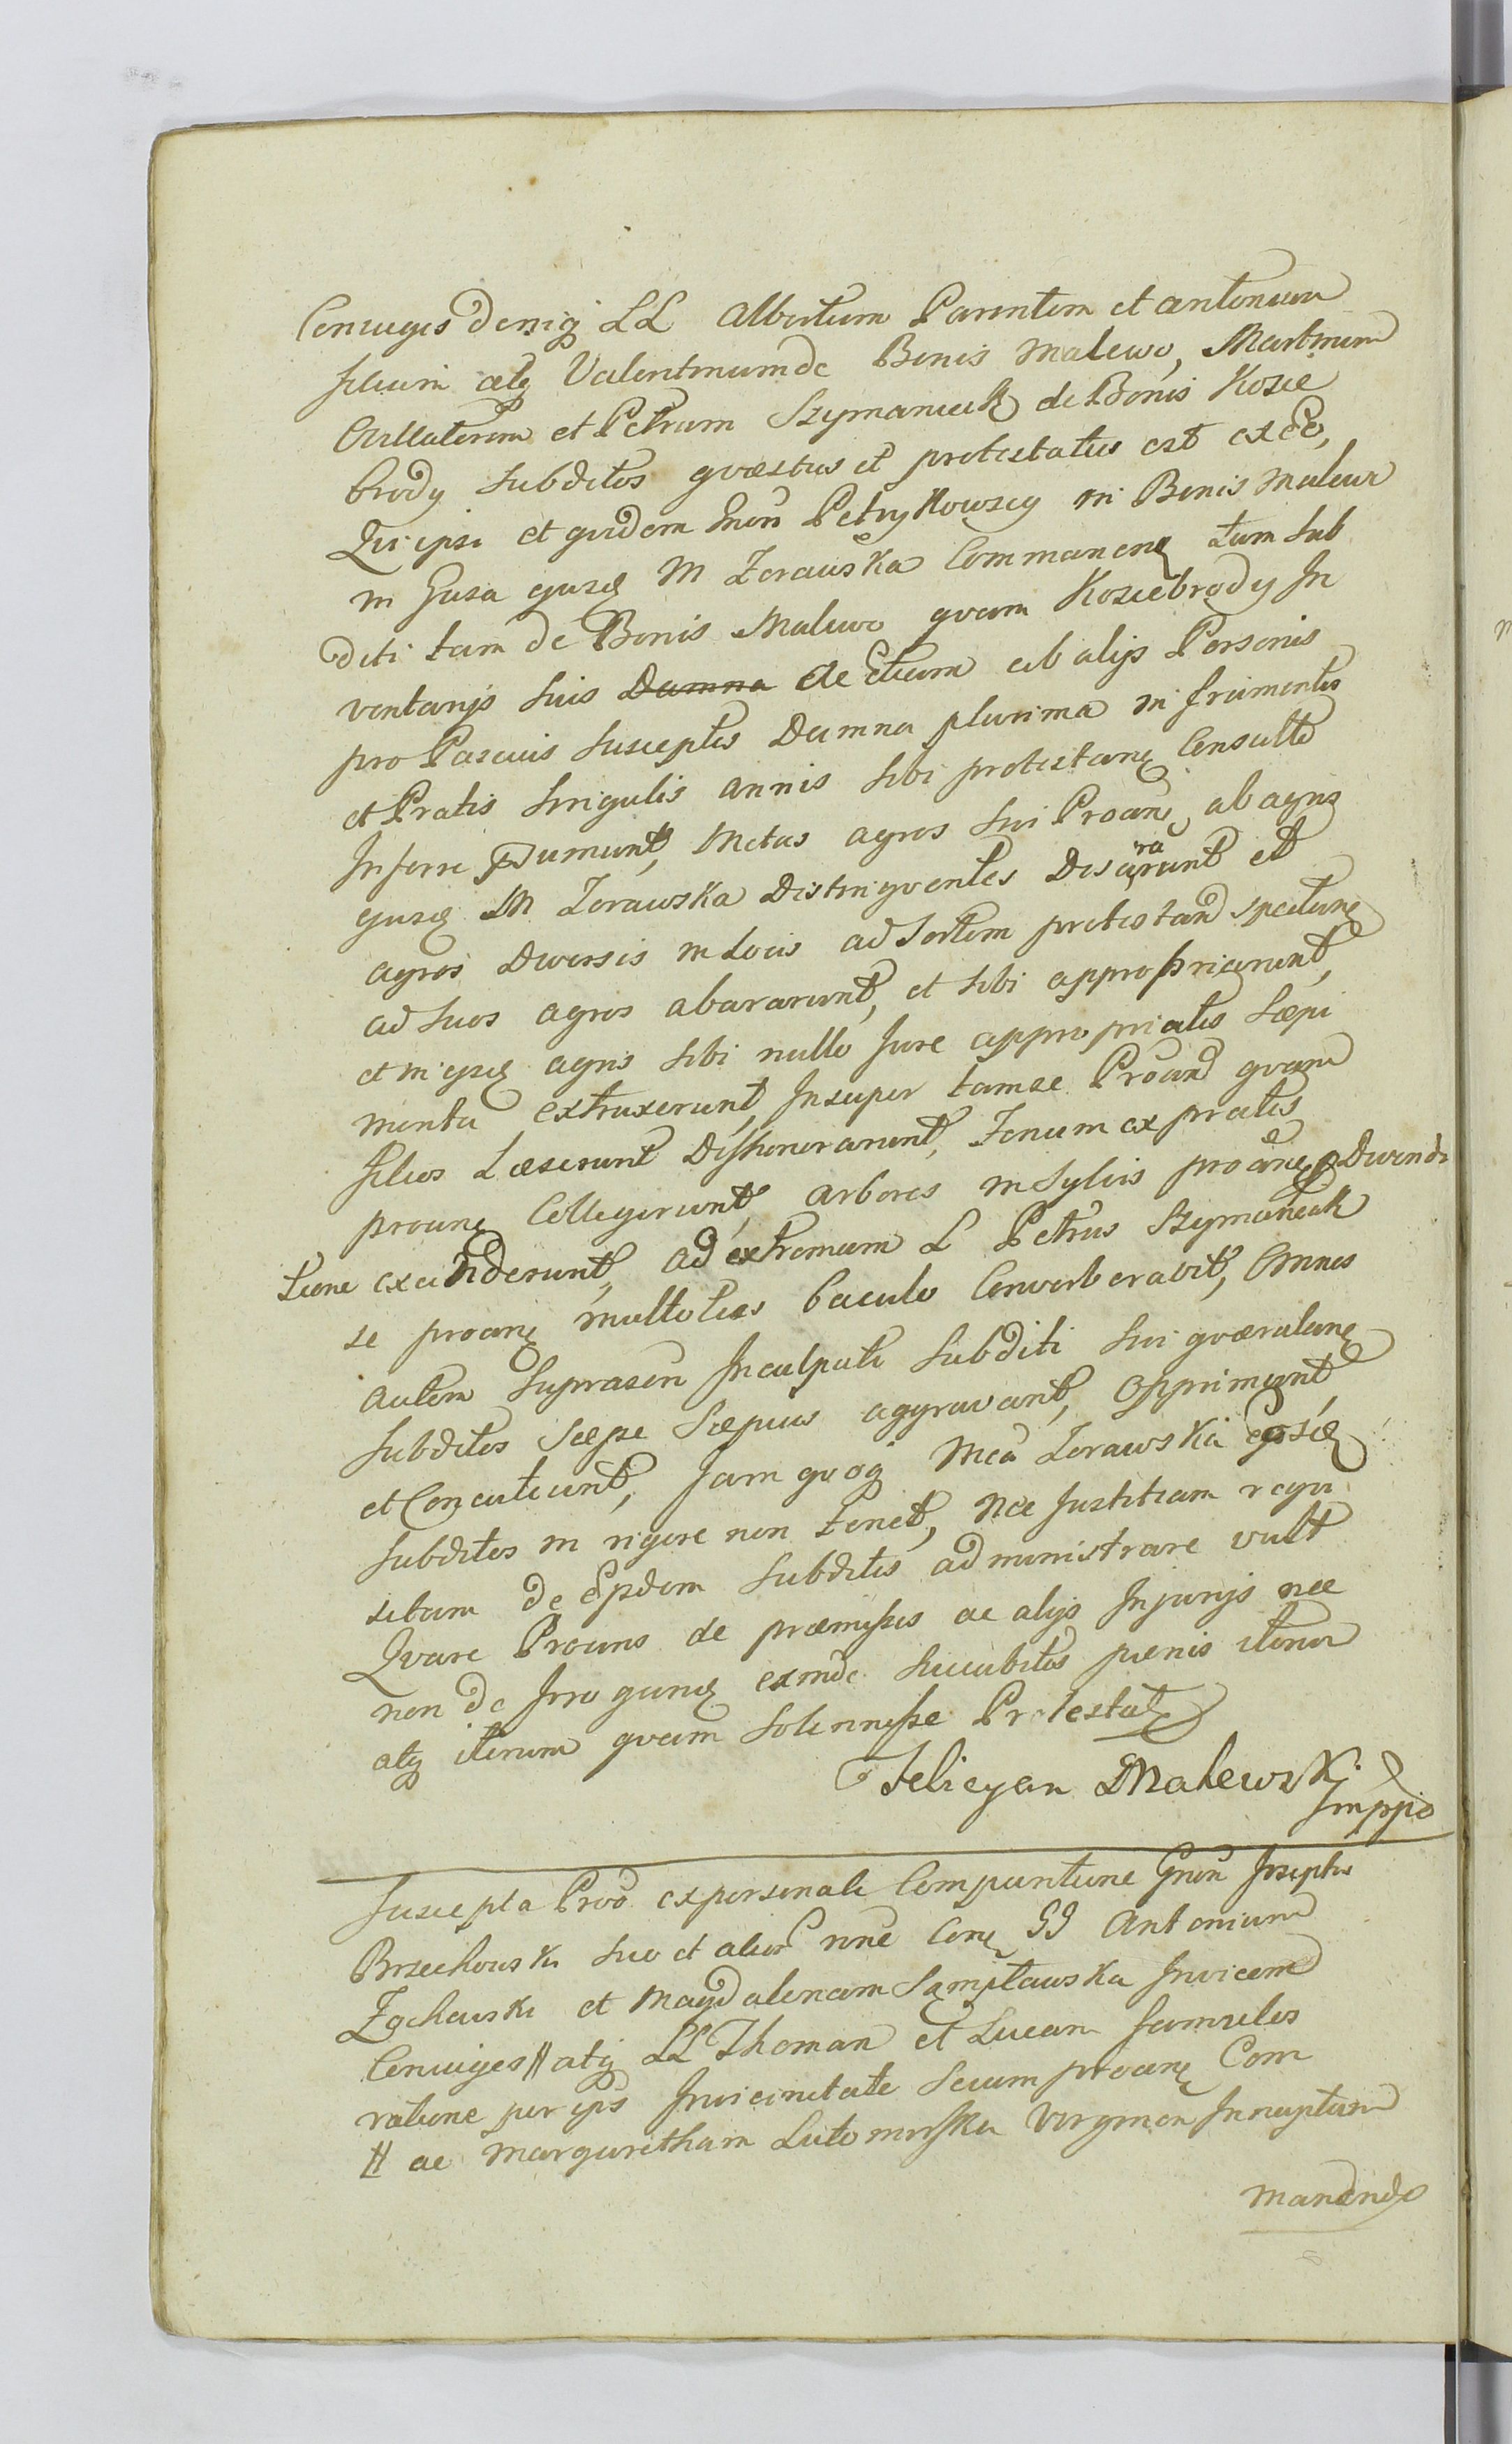 Coniuges deniq LL Albertum Parentem et Antonium
filium atq Valentinum de Bonis Malewo, Martinum
Civllaterem et Petrum Szymaniak de Bonis Kozie
brody subditos quæstus et protestatus est ex eo,
Qui ipsi et quidem Gnosi Petrykowscy in Bonis Malewo
in Gusa ejusq M Zorawska Commanen tum Sub
diti tam de Bonis Malewo quam Koziebrody In
ventarijs suis Damna Ac etiam ab alijs Personis
pro Pascuis susceptis Damna plurima in frumentis
et Pratis singulis annis sibi protestanq Consulto
Inferre Psumunt, Metas agros sui Proan ab agris
ejusq M Zorawska Distinguentes Disararunt et
agros Diversis in Locis ad Sortem protestand spectanq
ad suos agros abararunt, et sibi appropriarunt,
et in ijsq agris sibi nullo Jure appropriatis Sæpi
menta extruxerunt, Insuper tam se Proand quam
filios Læserunt Dishonorarunt, Fenum ex pratis
proanq Collegerunt, arbores in Sylvis proanq p Divendi
tione exciderunt, Ad extremum L Petrus Szymaniak
se proanq multoties baculo Converberavit, Omnes
autem Suprasen Inculpati Subditi sui quærulanq
subditos Sæpe Sæpius aggravant, Opprimunt
et Concutiunt, Jam quoq Mca Zorawska ejusq
subditos in rigore non Tenet, Nec Justitiam requi
sitam de ejsdem Subditis administrare vult
Qvare Proans de præmissis ac alijs Injurijs nec
non de Irroganq exinde succubitis pænis iterum
atq iterum quam Solennisse Protestatq
Felicyan Malewski
Imppo
Suscepta Prod ex personali Compantione Gnosi Josephi
Brzechowski suo et alior nne Conq GG Antonium
Zochowski et Magdalenam Sampławska Invicem
Coniuges # atq LL Thoman et Lucam famulos
ratione per ips Invicinitate Secum proanq Com
# ac Margaretham Lutomirska Virginem Innuptam
manendo